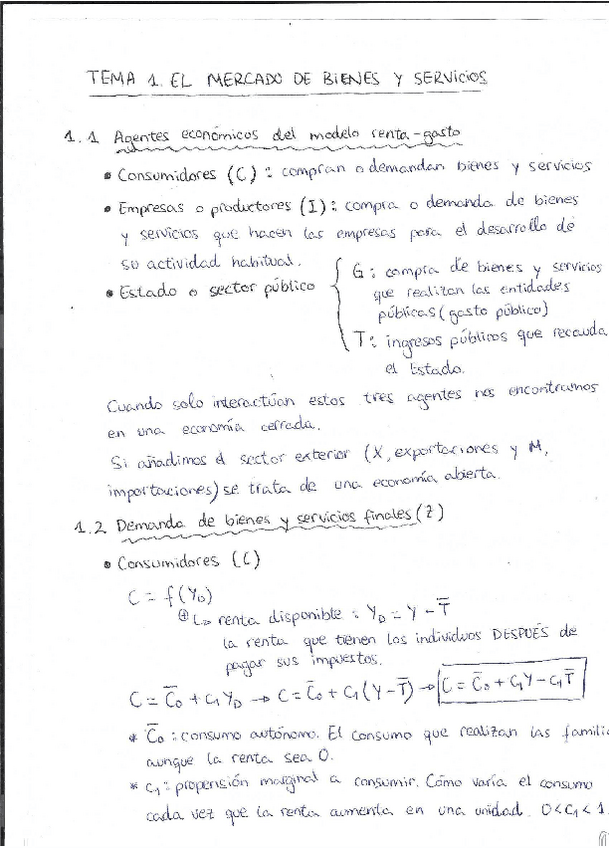 TEMA 1. EL MERCADO DE BIENES Y SERVICIOS
1.1 Agentes económicos del modelo renta-gasto
• Consumidores (C): compran o demandan bienes y servicios
• Empresas o productores (I): compra o demanda de bienes
y servicios que hacen las empresas para el desarrollo de
su actividad habitual.
• Estado o sector público { G: compra de bienes y servicios
que realizan las entidades
públicas (gasto público)
T: ingresos públicos que recauda
el Estado.
Cuando solo interactúan estos tres agentes nos encontramos
en una economía cerrada.
Si añadimos el sector exterior (X, exportaciones y M,
importaciones) se trata de una economía abierta.
1.2 Demanda de bienes y servicios finales (Z)
• Consumidores (C)
C = f(Y_D)
⊕ ↳ renta disponible: Y_D = Y - T̅
la renta que tienen los individuos DESPUÉS de
pagar sus impuestos.
C = C̅₀ + C₁Y_D → C = C̅₀ + C₁(Y - T̅) → C = C̅₀ + C₁Y - C₁T̅
* C̅₀: consumo autónomo. El consumo que realizan las famili
aunque la renta sea 0.
* C₁: propensión marginal a consumir. Cómo varía el consumo
cada vez que la renta aumenta en una unidad. 0<C₁<1.